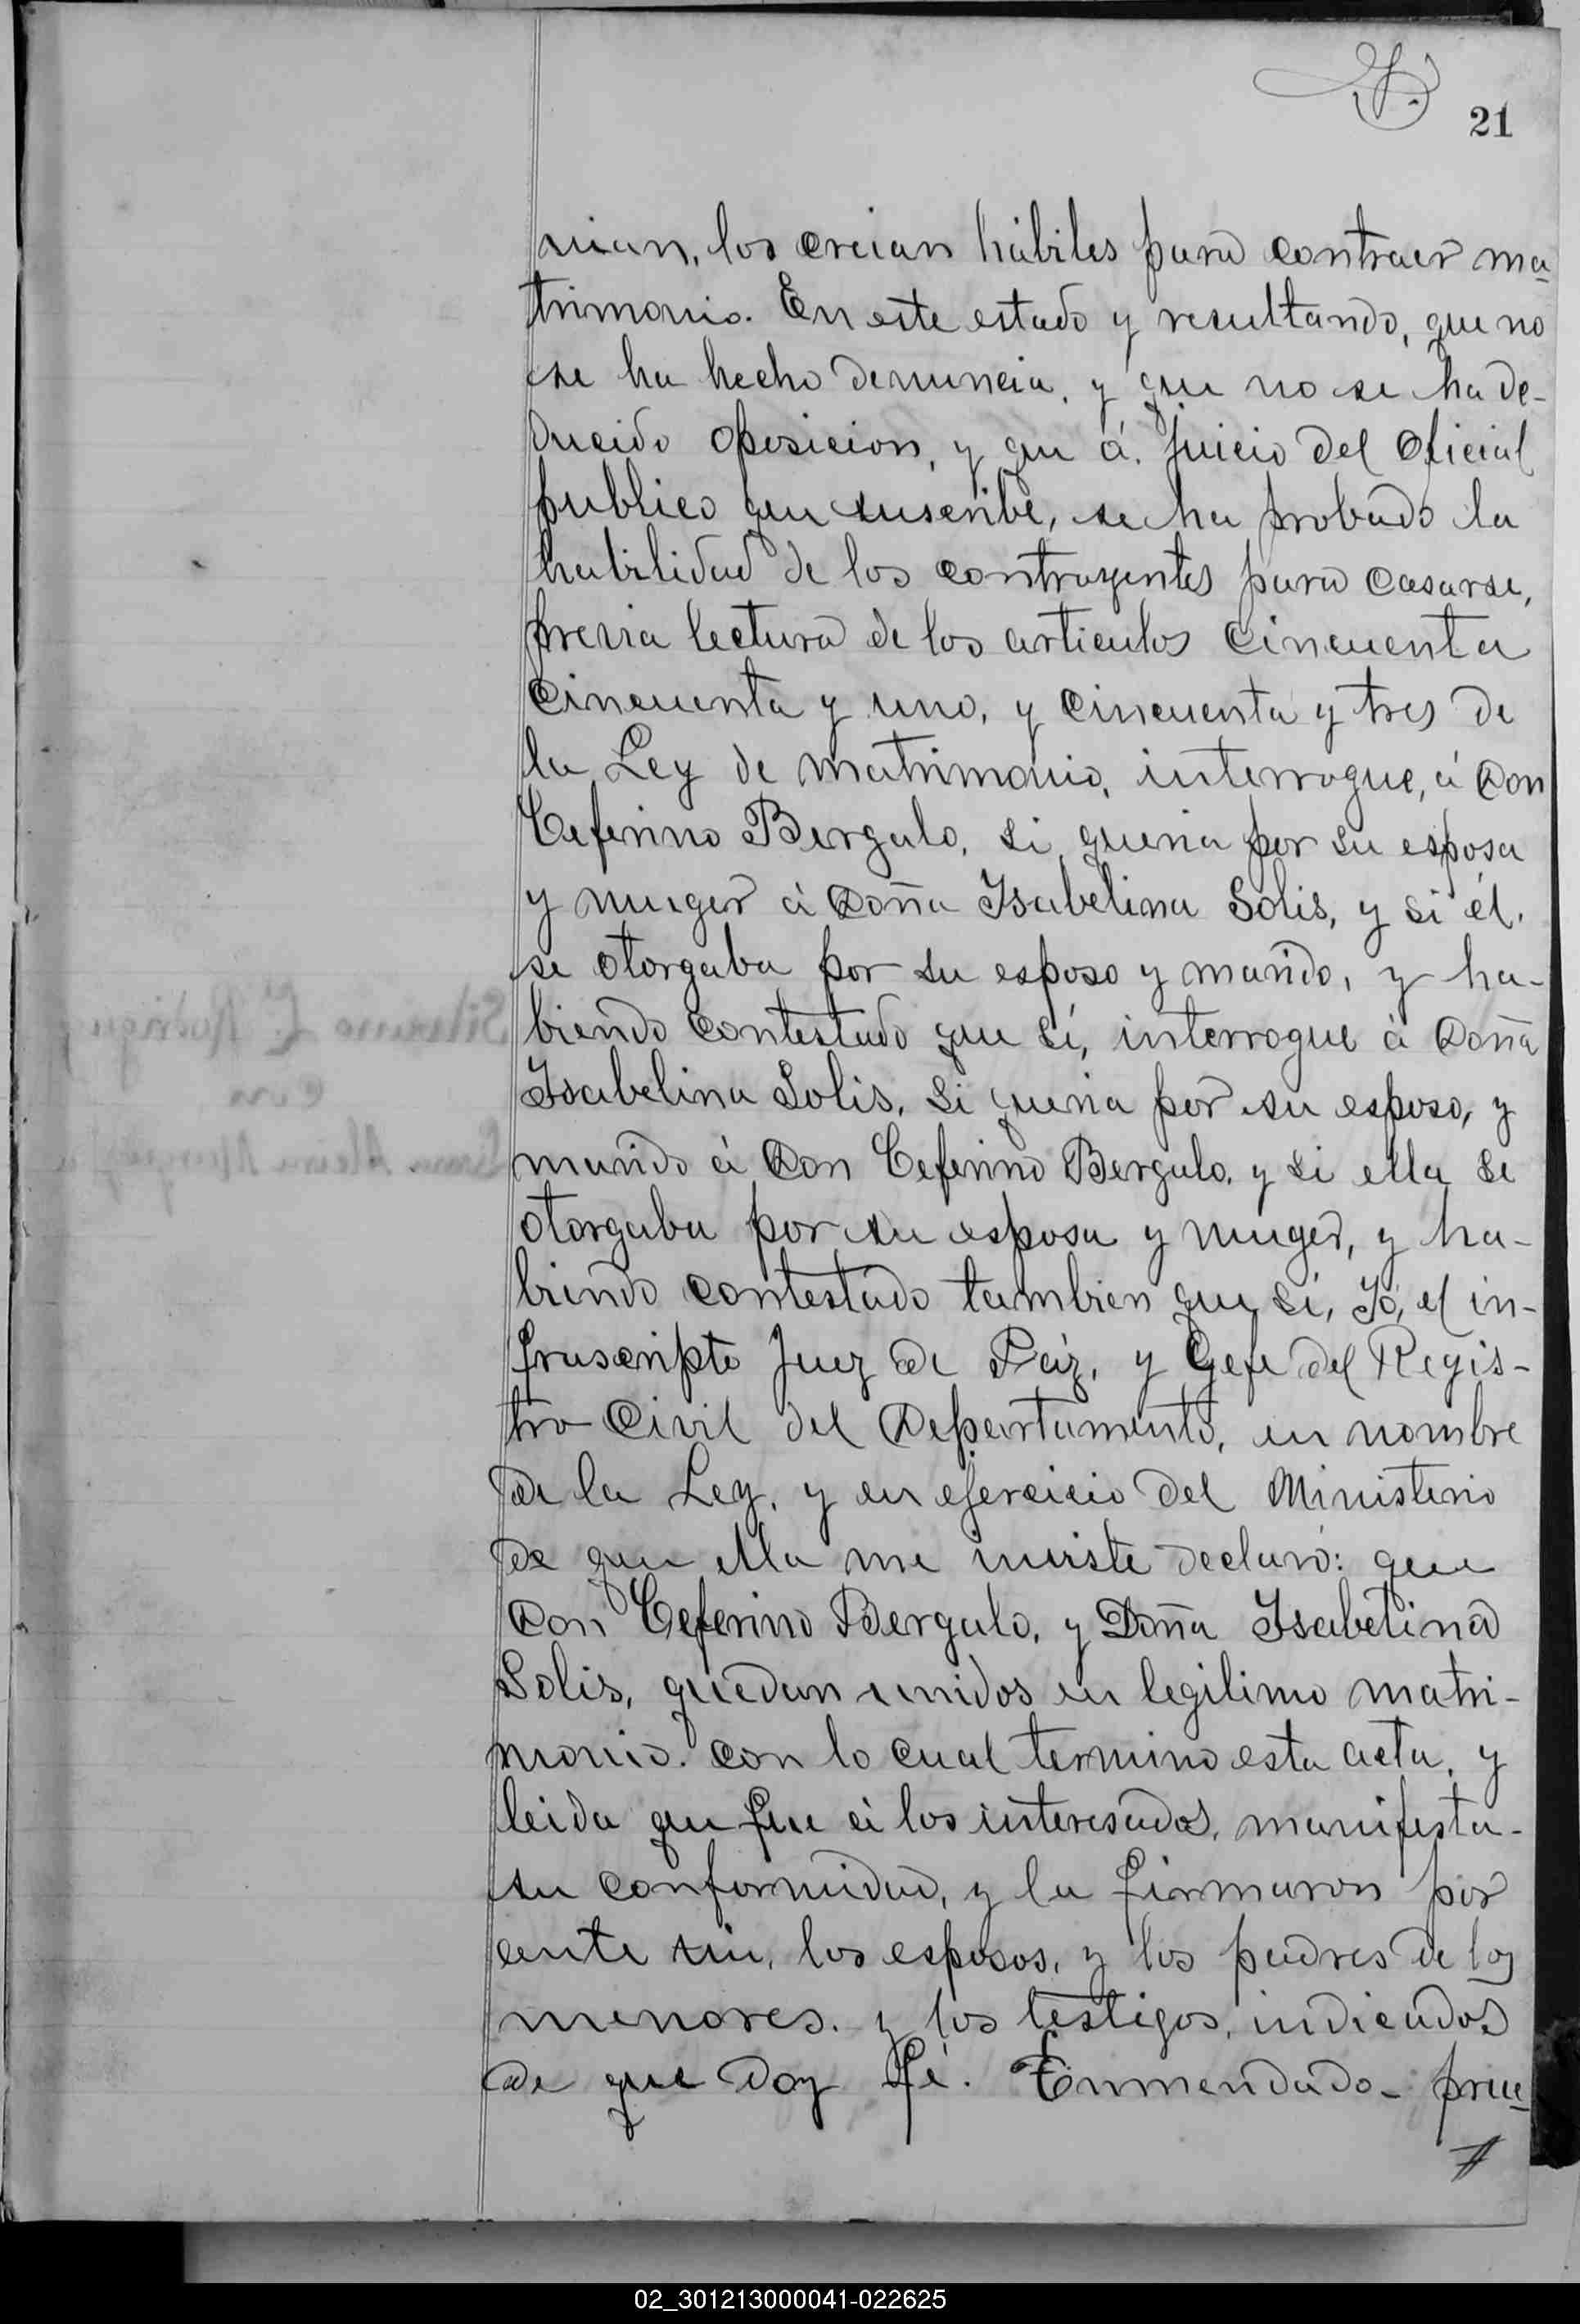 21
nian, los creian hábiles para contraer ma-
trimonio. En este estado y resultando, que no
se ha hecho denuncia, y que no se ha de-
ducido oposicion, y que á juicio del Oficial
publico que suscribe, se ha probado la
habilidad de los contrayentes para casarse,
previa lectura de los articulos cincuenta
cincuenta y uno, y cincuenta y tres de
la Ley de matrimonio, interrogue, á Don
Ceferino Bergalo, si queria por su esposa
y muger á Doña Isabelina Solis, y si él
se otorgaba por su esposo y marido, y ha-
biendo contestado que sí, interrogue á Doña
Isabelina Solis, si queria por su esposo, y
marido á Don Ceferino Bergalo, y si ella se
otorgaba por su esposa y muger, y ha-
biendo contestado tambien que sí, Yó, el in-
frascripto Juez de Paz, y Gefe del Regis-
tro Civil del Departamento, en nombre
de la Ley, y en ejercicio del Ministerio
de que ella me inviste declaró: que
Don Ceferino Bergalo, y Doña Isabelina
Solis, quedan unidos en legitimo matri-
monio. con lo cual termino esta acta, y
leida que fue á los interesados, manifesta-
su conformidad, y la firmaron por
ante mi, los esposos, y los padres de los
menores. y los testigos, indicados
de que doy fé. Enmendado - prue-
02_301213000041-022625